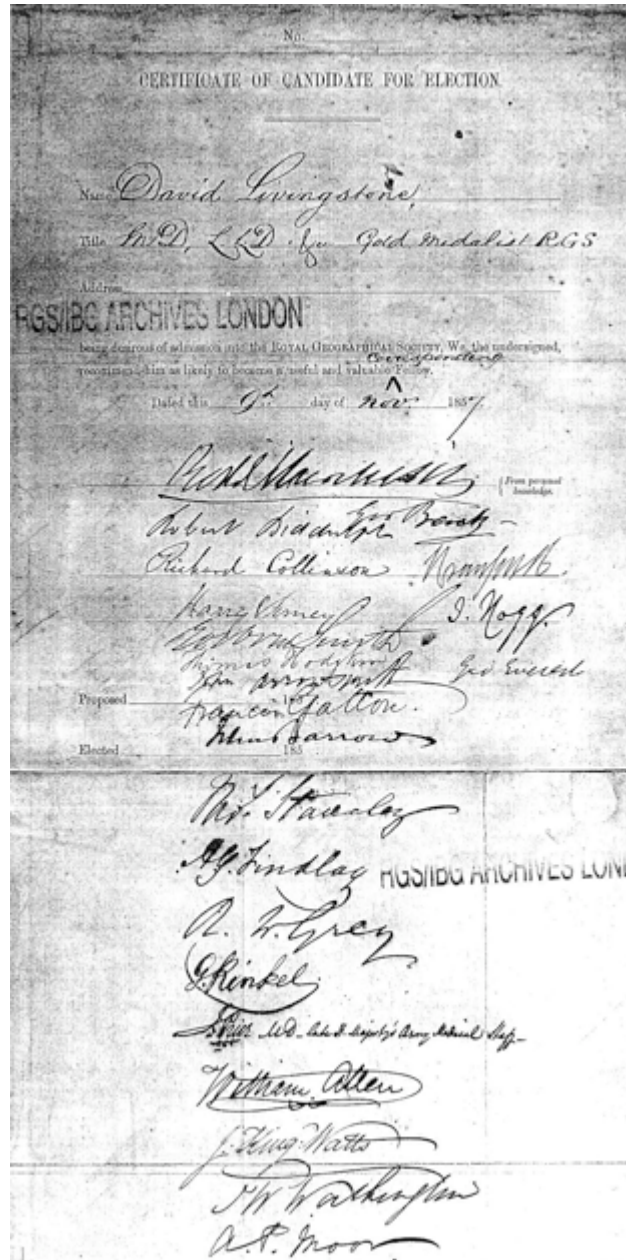 No.
CERTIFICATE OF CANDIDATE FOR ELECTION.
Name David Livingstone,
Title M.D, L.L.D &c Gold Medalist R.G.S
Address
RGS/IBG ARCHIVES LONDON
being desirous of admission into the ROYAL GEOGRAPHICAL SOCIETY, We, the undersigned,
Corresponding
recommend him as likely to become a useful and valuable Fellow.
Dated this 9th day of Nov. 1857.
(From personal
knowledge.
Robert Biddulph Geo Back
Richard Collinson
J. Hogg.
Thomas Hodgkin Geo Everest
John Arrowsmith
Proposed 185
Francis Galton.
John Barrow
Elected 185
A.G. Findlay RGS/IBG ARCHIVES LON
R. W. Grey
G. Kinkel
MD. Army Medical Staff
William Allen
J. King Watts
Washington
A. P. Moor